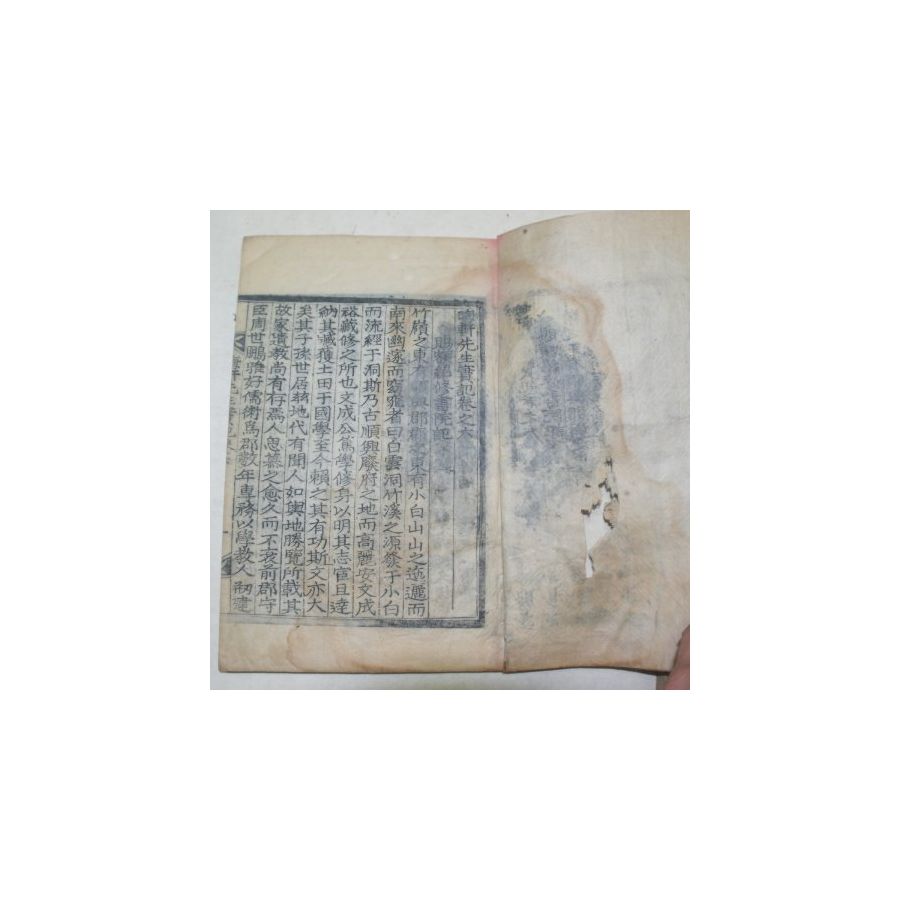 軒先生實記卷之六
紹修書院記
竹嶺之東 郡郡 東有小白山山之迤邐而
南來幽邃而窈窕者曰白雲洞竹溪之源發于小白
而流經于洞斯乃古順興廢府之地而高麗安文成
裕藏修之所也文成公篤學修身以明其志宦且達
納其臧獲土田于國學至今賴之其有功斯文亦大
矣其子孫世居玆地代有聞人如輿地勝覽所載其
故家遺敎尚有存焉人思慕之愈久而不衰前郡守
臣周世鵬雅好儒術爲郡數年專務以學敎人 刱建